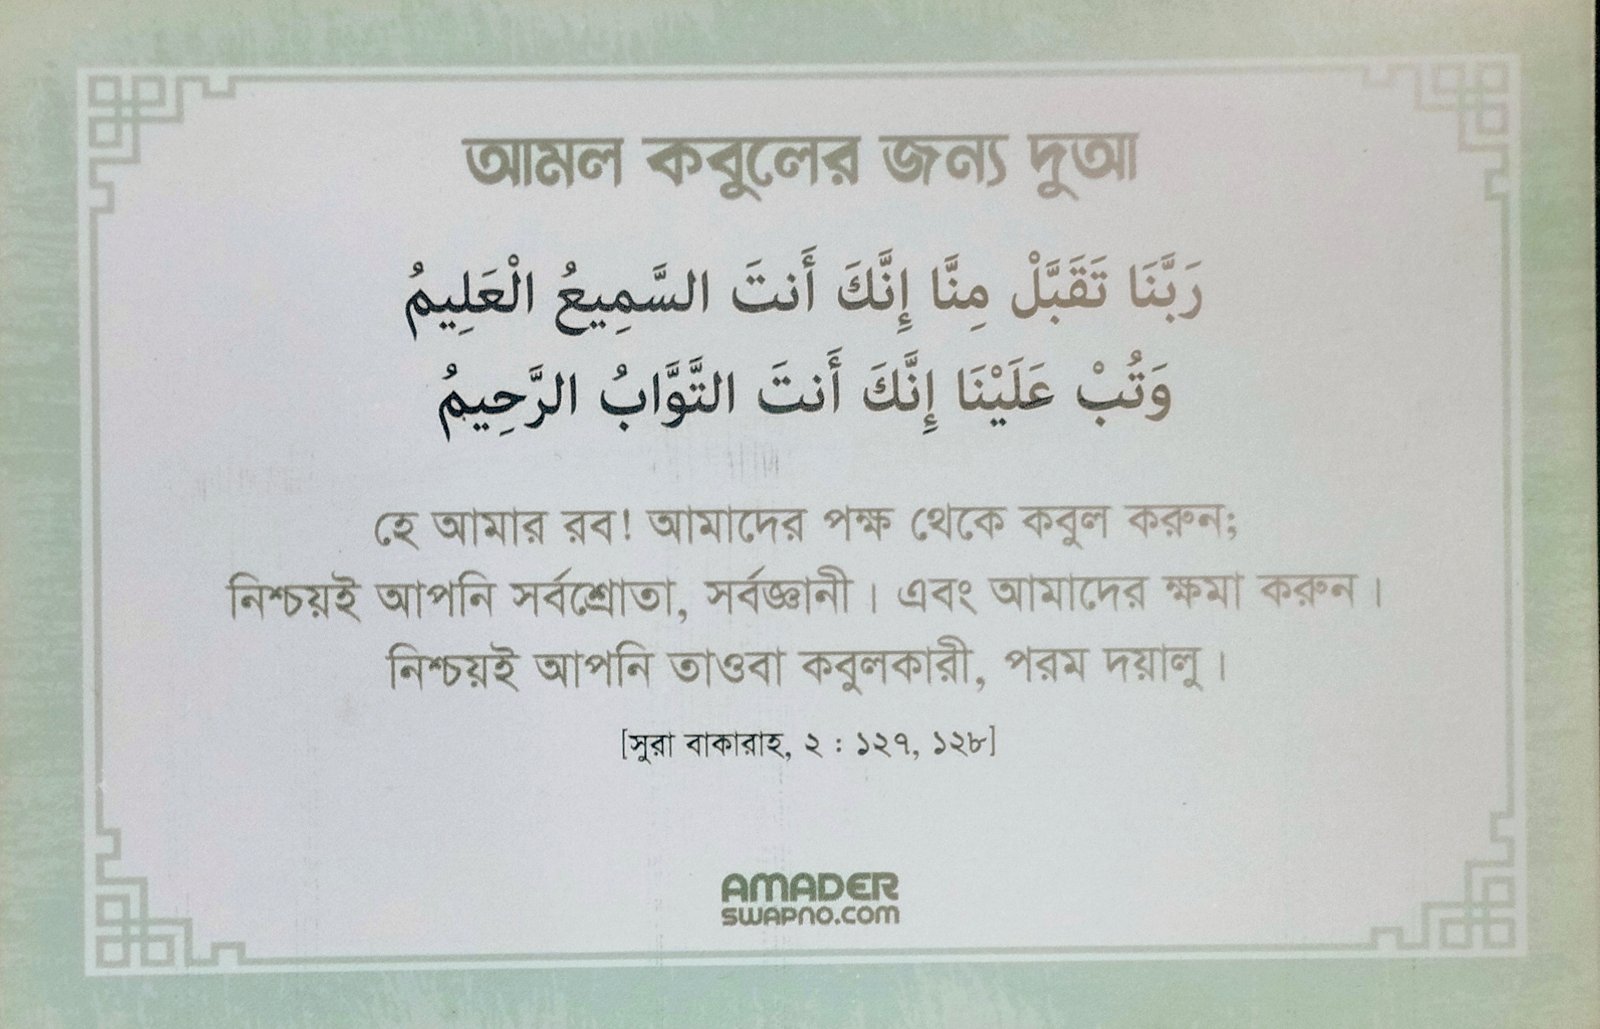 আমল কবুলের জন্য দুআ
رَبَّنَا تَقَبَّلْ مِنَّا إِنَّكَ أَنتَ السَّمِيعُ الْعَلِيمُ
وَتُبْ عَلَيْنَا إِنَّكَ أَنتَ التَّوَّابُ الرَّحِيمُ
হে আমার রব! আমাদের পক্ষ থেকে কবুল করুন;
নিশ্চয়ই আপনি সর্বশ্রোতা, সর্বজ্ঞানী। এবং আমাদের ক্ষমা করুন।
নিশ্চয়ই আপনি তাওবা কবুলকারী, পরম দয়ালু।
[সুরা বাকারাহ, ২ : ১২৭, ১২৮]
AMADER
SWAPNO.COM